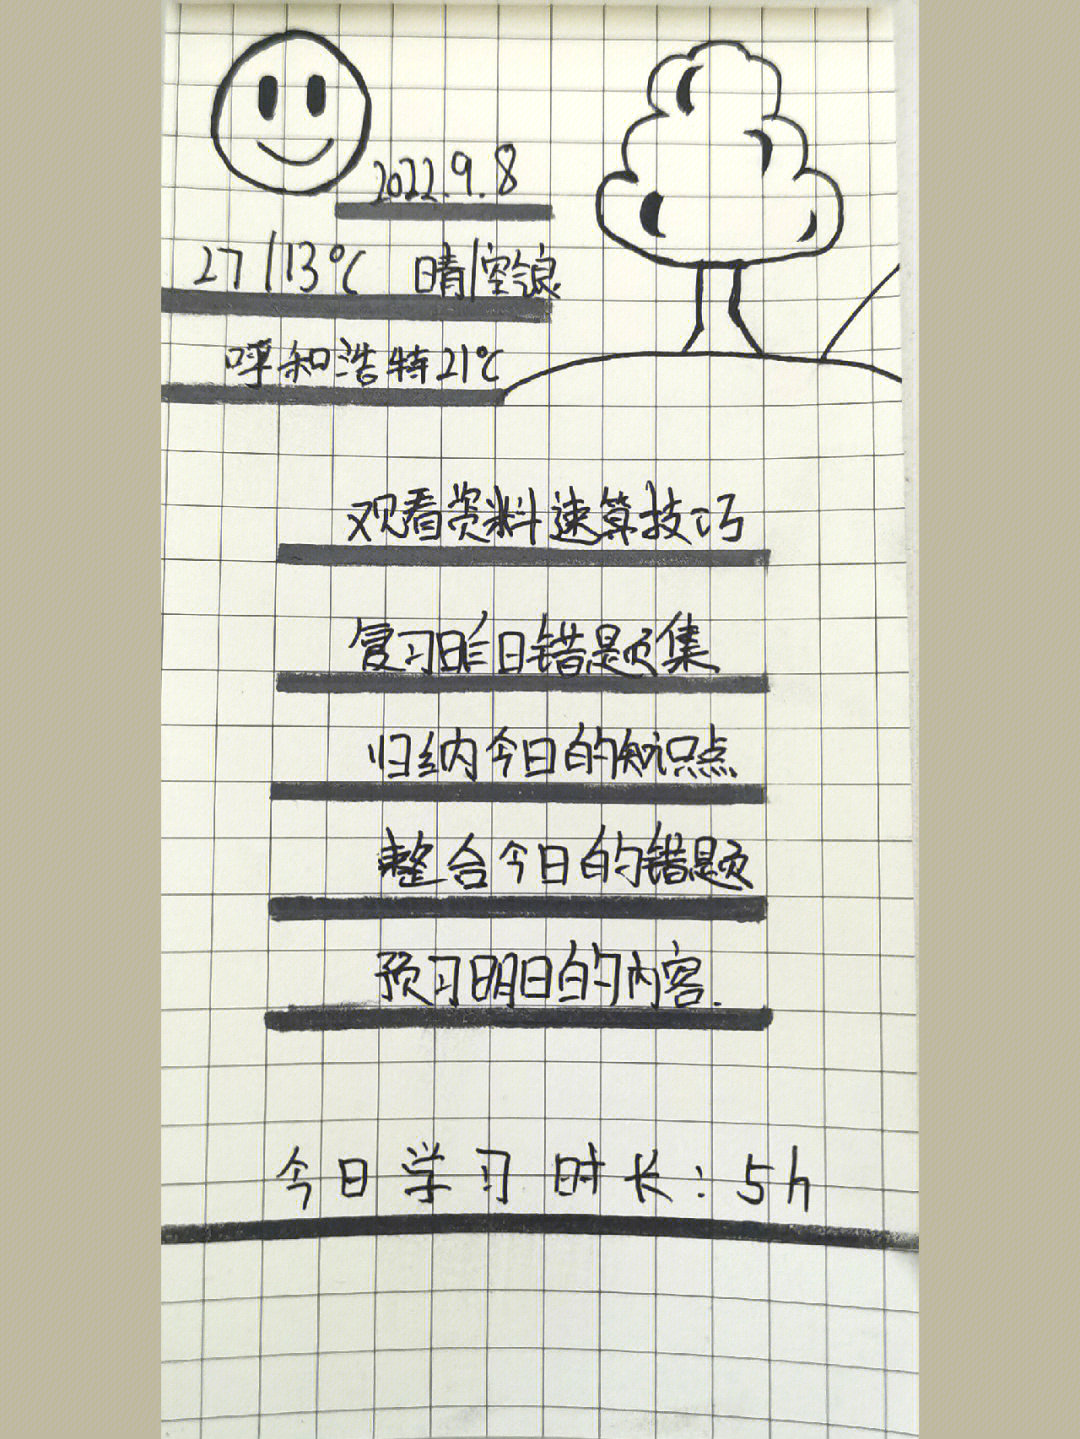 2022.9.8
27/13℃ 晴/空气良
呼和浩特21℃
观看资料速算技巧
复习昨日错题集
归纳今日的知识点
整合今日的错题
预习明日的内容.
今日学习时长:5h